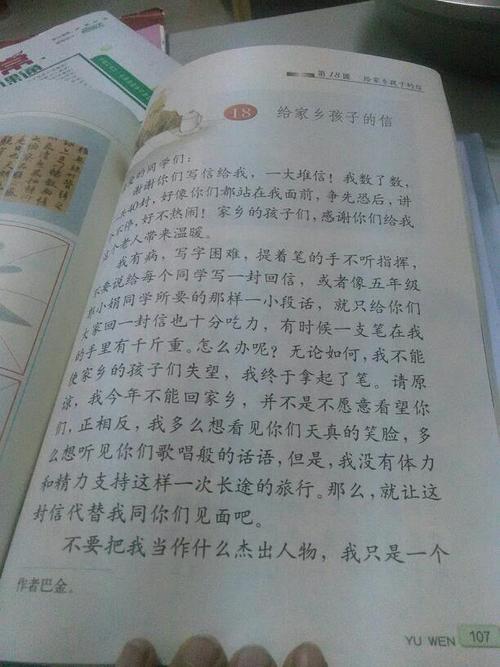 第18课 给家乡孩子的信
18 给家乡孩子的信
的同学们：
谢谢你们写信给我，一大堆信！我数了数，
共40封，好像你们都站在我面前，争先恐后，讲
个不停，好不热闹！家乡的孩子们，感谢你们给我
这个老人带来温暖。
我有病，写字困难，提着笔的手不听指挥，
不要说给每个同学写一封回信，或者像五年级
小娟同学所要的那样一小段话，就只给你们
大家回一封信也十分吃力，有时候一支笔在我
的手里有千斤重。怎么办呢？无论如何，我不能
使家乡的孩子们失望，我终于拿起了笔。请原
谅，我今年不能回家乡，并不是不愿意看望你
们，正相反，我多么想看见你们天真的笑脸，多
么想听见你们歌唱般的话语，但是，我没有体力
和精力支持这样一次长途的旅行。那么，就让这
封信代替我同你们见面吧。
不要把我当作什么杰出人物，我只是一个
作者巴金。
YU WEN 107